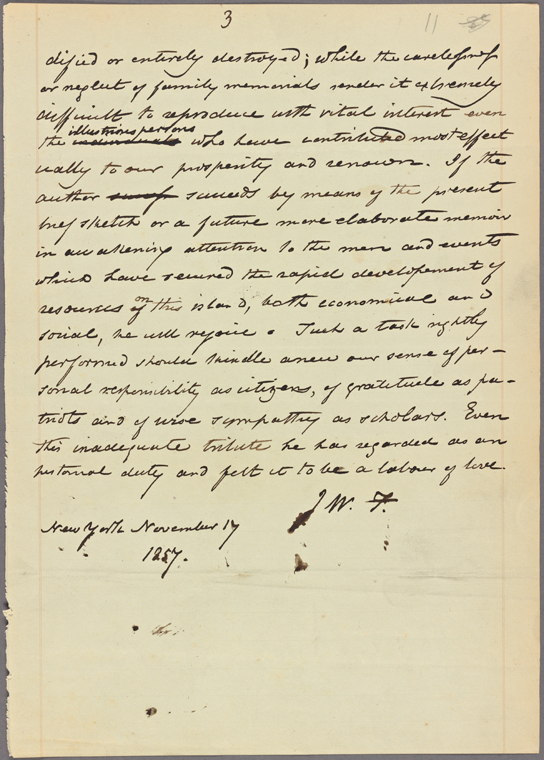 3
11
dified or entirely destroyed; while the carelessness
or neglect of family memorials render it extremely
difficult to reproduce with vital interest even
illustrious persons
the individuals who have contributed most effect
ually to our prosperity and renown. If the
author succeeds by means of the present
brief sketch or a future more elaborate memoir
in awakening attention to the men and events
which have secured the rapid developement of
resources on this island, both economical and
social, he will rejoice. Such a task rightly
performed should kindle anew our sense of per-
sonal responsibility as citizens, of gratitude as pa-
triots and of wise sympathy as scholars. Even
this inadequate tribute he has regarded as an
historical duty and felt it to be a labour of love.
J W. F.
New York November 17
1857.